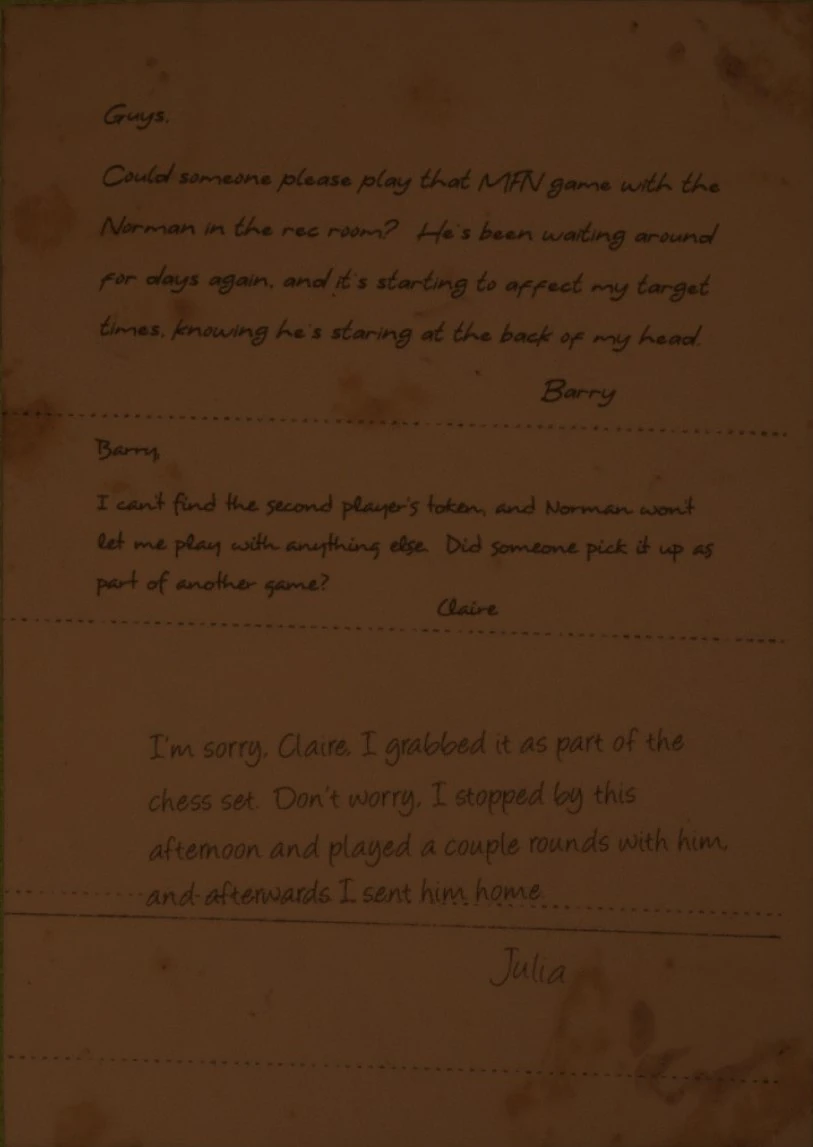 Guys,
Could someone please play that MFN game with the
Norman in the rec room? He's been waiting around
for days again, and it's starting to affect my target
times, knowing he's staring at the back of my head.
Barry
Barry,
I can't find the second player's token, and Norman won't
let me play with anything else. Did someone pick it up as
part of another game?
Claire
I'm sorry, Claire, I grabbed it as part of the
chess set. Don't worry, I stopped by this
afternoon and played a couple rounds with him,
and afterwards I sent him home.
Julia